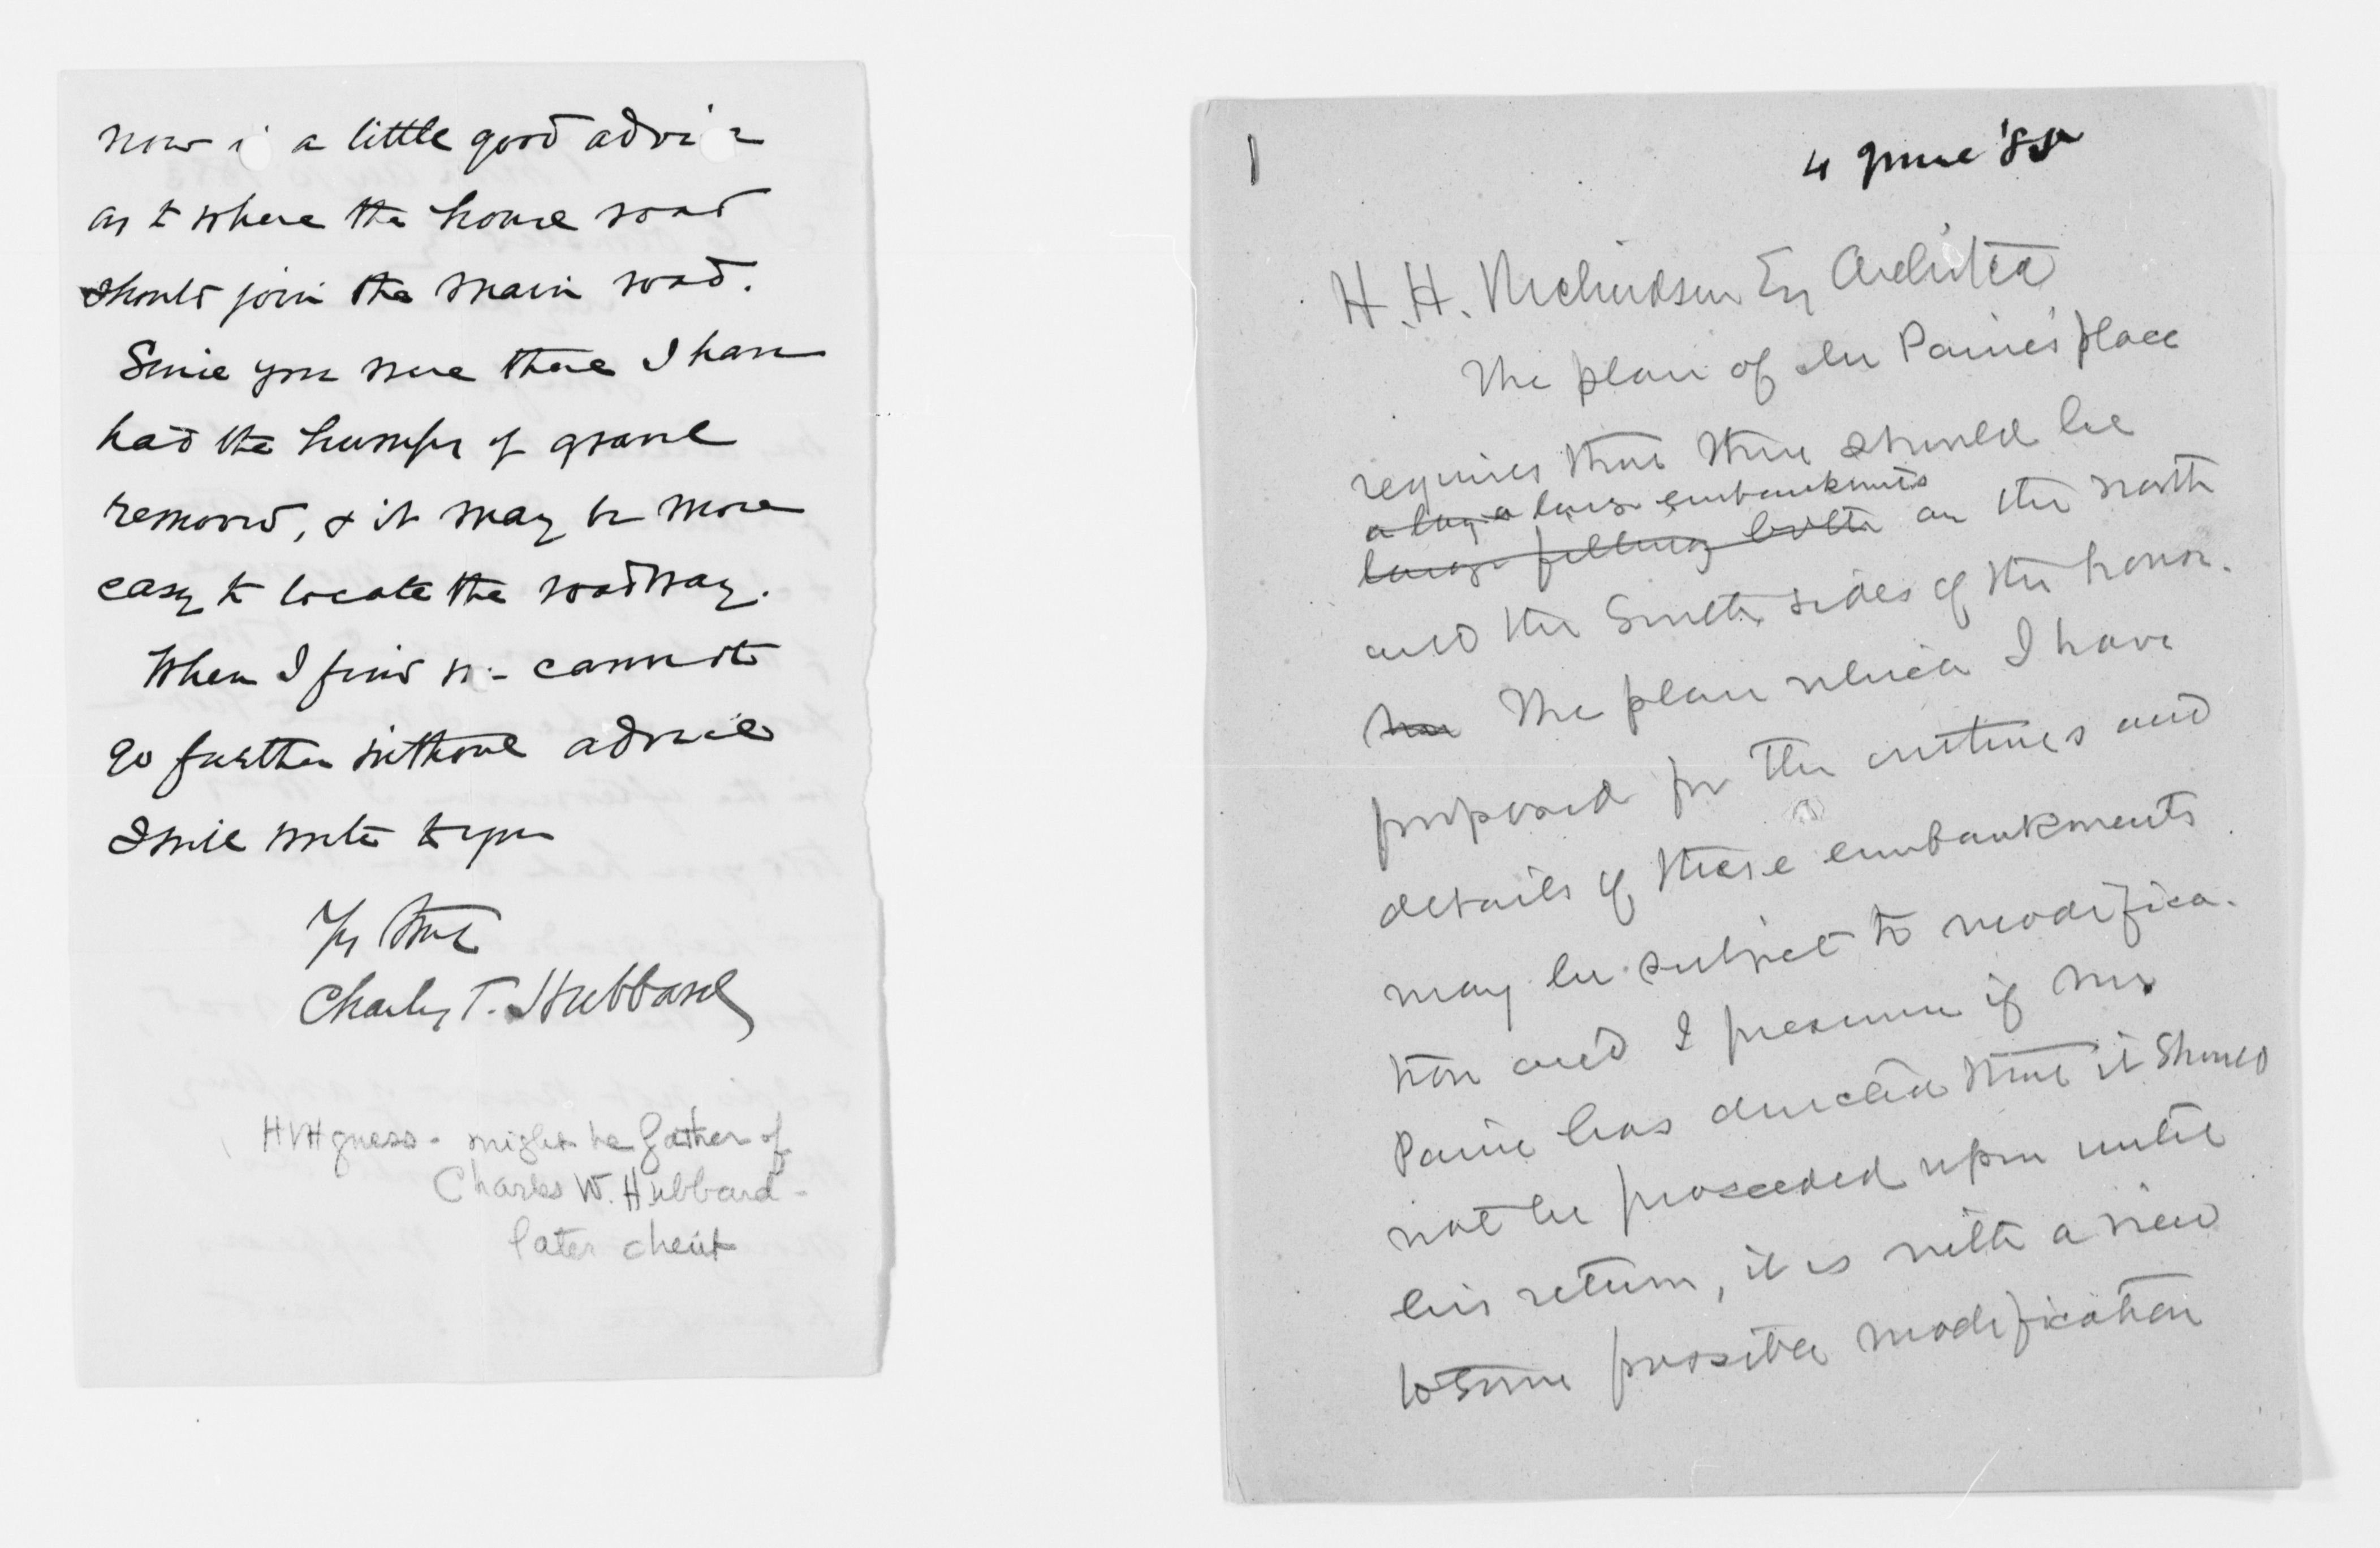 now is a little good advice
as to where the house road
should join the main road.
Since you were there I have
had the humps of gravel
removed, & it may be more
easy to locate the roadway.
When I find we cannot
go further without advice
I will write to you
Yrs truly
Charles T. Hubbard
HVH guess - might be father of
Charles W. Hubbard -
later client
1
4 June '8
H. H. Richardson Esq Architect
The plan of Mr Paine's place
requires that there should be
a large embankments
large filling both on the north
and the South sides of the house.
The plan which I have
proposed for the outlines and
details of these embankments
may be subject to modifica-
tion and I presume if Mr
Paine has directed that it should
not be proceeded upon until
his return, it is with a view
to some possible modification